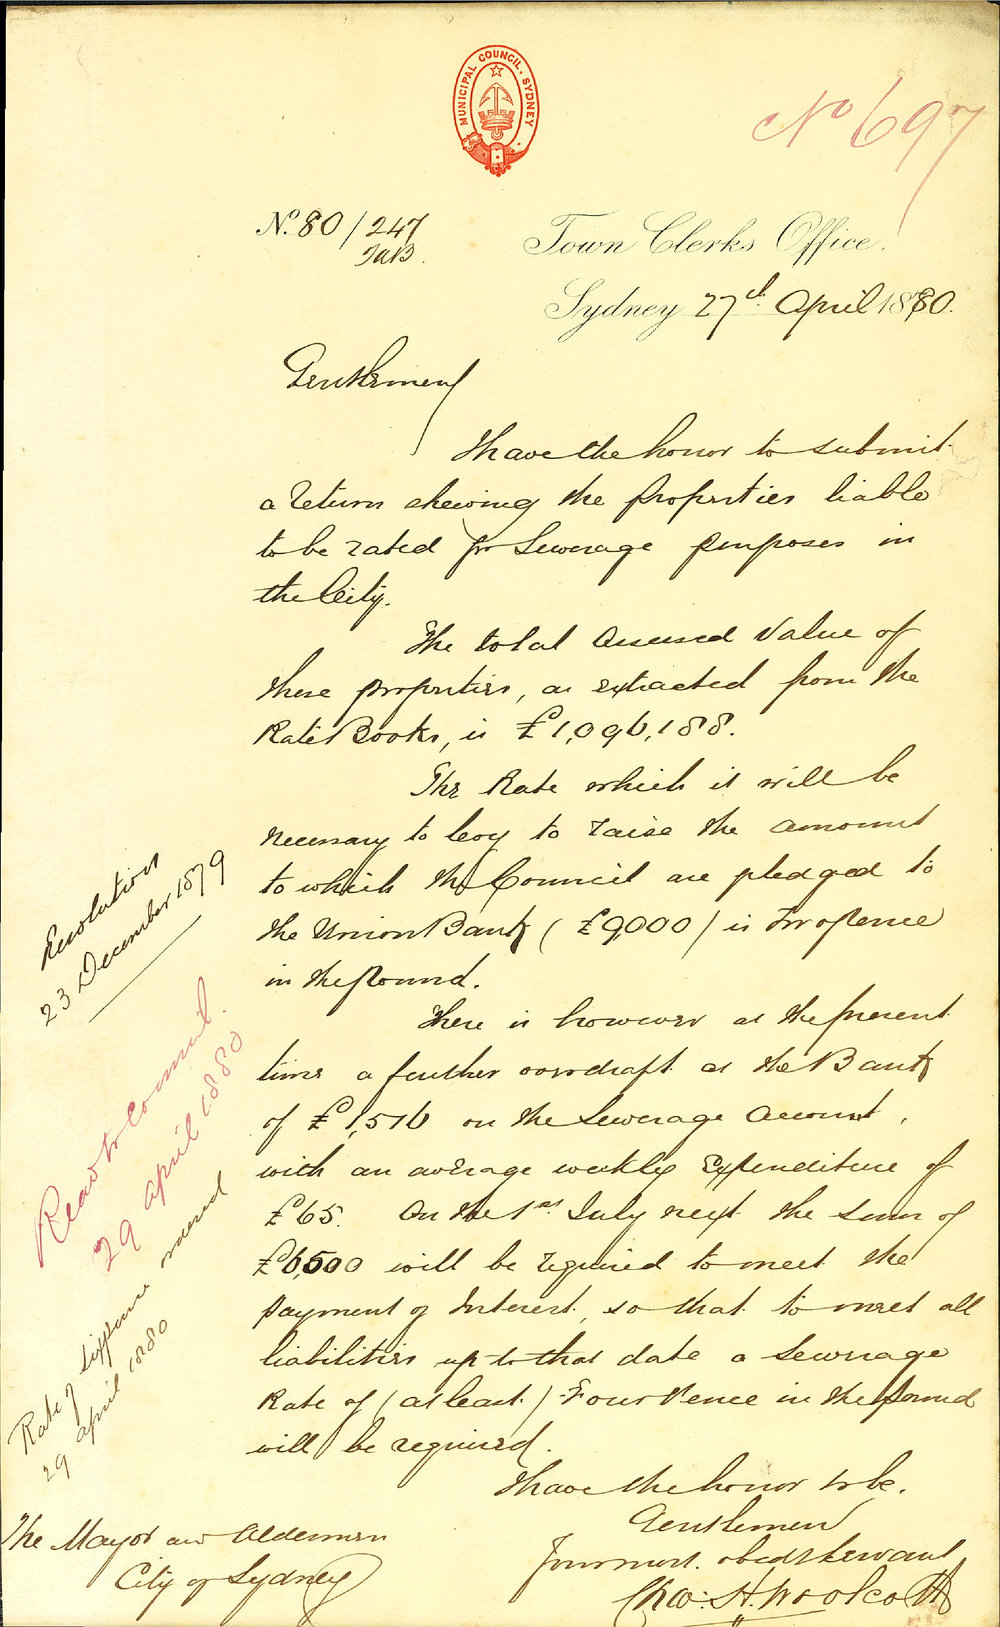 MUNICIPAL COUNCIL. SYDNEY
No 697
No. 80/247
Town Clerks Office.
Sydney 27th April 1880.
Gentlemen
I have the honor to submit
a return shewing the properties liable
to be rated for Sewerage purposes in
the City.
The total Assessed Value of
these properties, as extracted from the
Rate Books, is £1,096,188.
The Rate which it will be
necessary to levy to raise the amount
to which the Council are pledged to
the Union Bank (£9,000) is Twopence
in the pound.
There is however at the present
time a further overdraft at the Bank
of £1,516 on the Sewerage Account,
with an average weekly Expenditure of
£65. On the 1st July next the sum of
£6,500 will be required to meet the
payment of Interest, so that to meet all
liabilities up to that date a Sewerage
Rate of (at least) Four Pence in the pound
will be required.
I have the honor to be.
Gentlemen
Your most obedt Servant
Chas: H. Woolcott
The Mayor and Aldermen
City of Sydney
Resolution
23 December 1879
Read to Council.
29 April 1880
Rate of Sixpence moved
29 April 1880